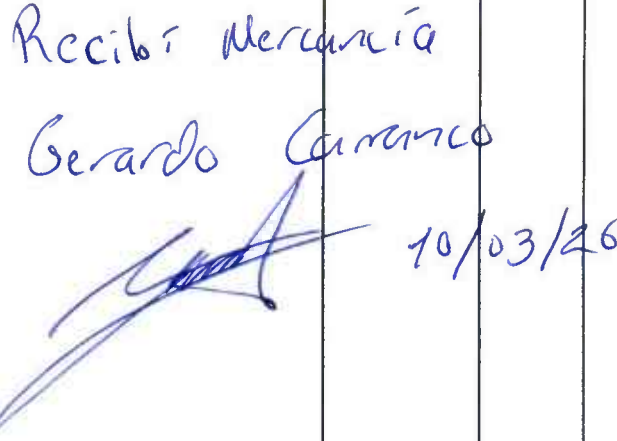 Recibí Mercancía
Gerardo Carranco
10/03/26